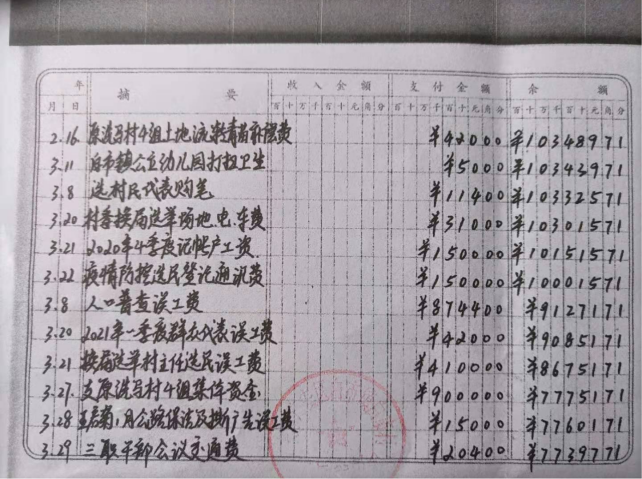 年 摘 要 收入金额 支付金额 余 额
月 日 百十万千百十元角分 百十万千百十元角分 百十万千百十元角分
2.16 原洗马村4组土地流转青苗补偿费 ¥42000 ¥10348971
3.11 白市镇公立幼儿园打扫卫生 ¥5000 ¥10343971
3.8 选村民代表购笔 ¥11400 ¥10332571
3.20 村委换届选举场地.电.车费 ¥31000 ¥10301571
3.21 2020年4季度记帐户工资 ¥150000 ¥10151571
3.22 疫情防控选民登记通讯费 ¥150000 ¥10001571
3.8 人口普查误工费 ¥874400 ¥9127171
3.20 2021年一季度群众代表误工费 ¥42000 ¥9085171
3.21 换届选举村主任选民误工费 ¥410000 ¥8675171
3.27 支原洗马村4组集体资金 ¥900000 ¥7775171
3.28 公路保洁及 广告误工费 ¥15000 ¥7760171
3.29 三职干部会议交通费 ¥20400 ¥7739771